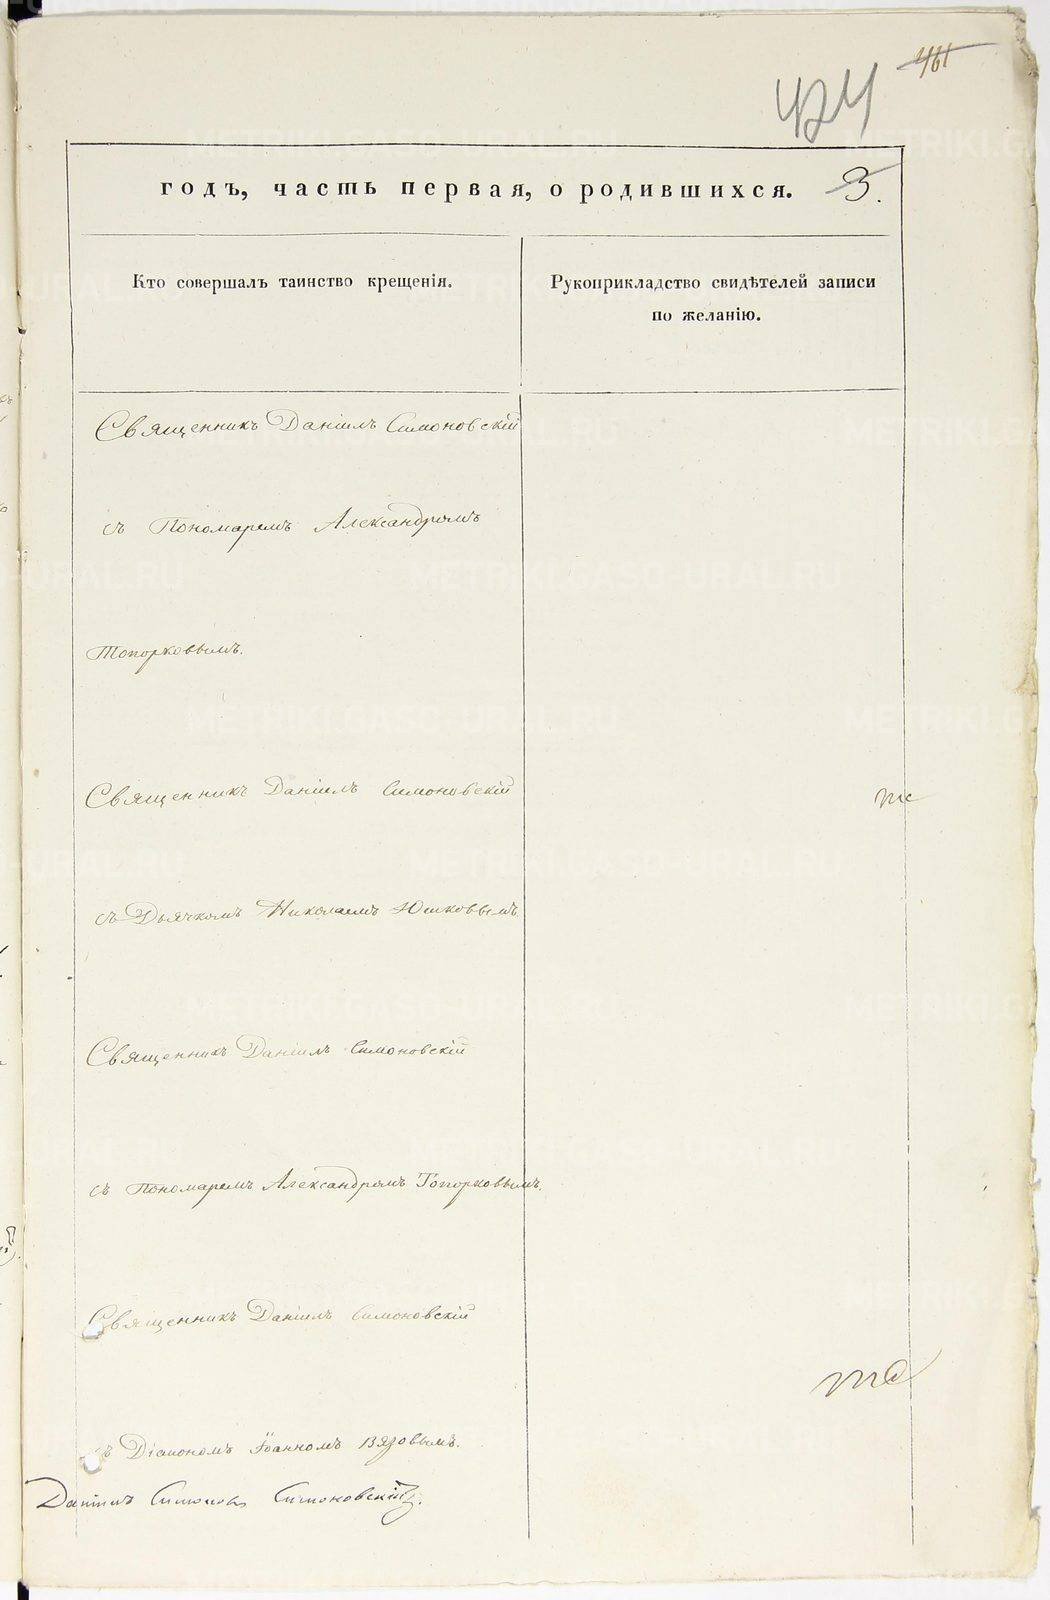 461
424
годъ, часть первая, о родившихся. 3.
Кто совершалъ таинство крещенія.
Рукоприкладство свидѣтелей записи
по желанію.
Священникъ Даніилъ Симоновскій
съ Пономаремъ Александромъ
Топорковымъ.
Священникъ Даніилъ Симоновскій
съ Дьячкомъ Николаемъ Юшковымъ.
Священникъ Даніилъ Симоновскій
съ Пономаремъ Александромъ Топорковымъ.
Священникъ Даніилъ Симоновскій
съ Діакономъ Іоанномъ Вязовымъ.
Даніилъ Симоновскій.
METRIKI.GASO-URAL.RU